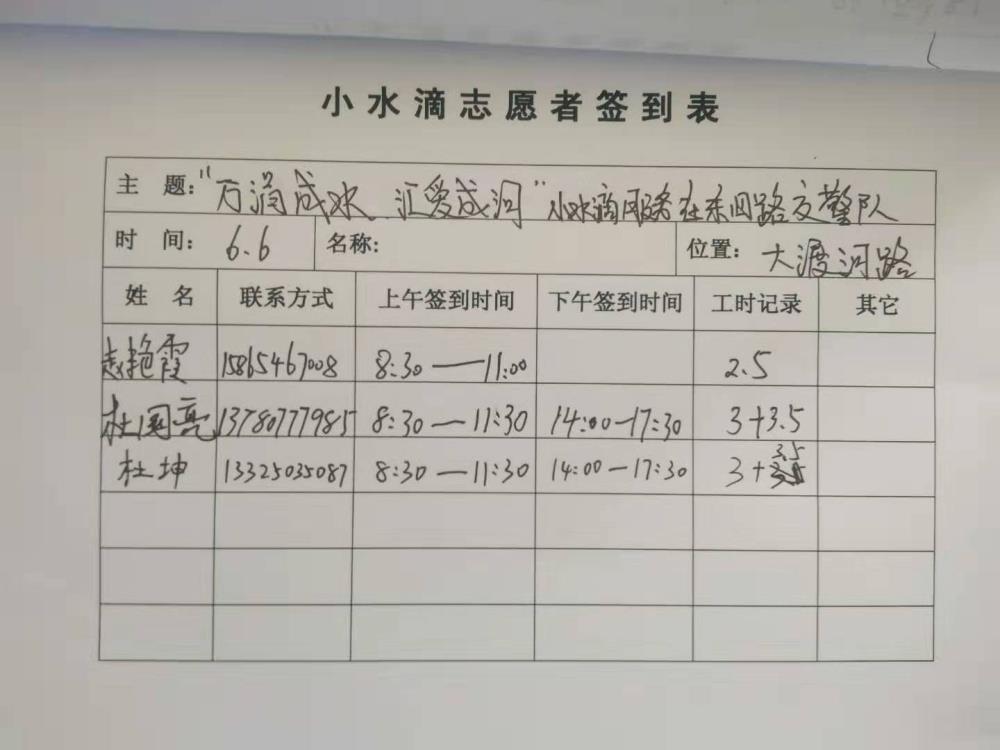 小水滴志愿者签到表
主 题:"万滴成水 汇爱成河"小水滴服务在东回路交警队
时 间: 6.6 名称: 位置: 大渡河路
姓 名 联系方式 上午签到时间 下午签到时间 工时记录 其它
赵艳霞 15865467008 8:30—11:00 2.5
杜国亮 13780777985 8:30—11:30 14:00—17:30 3+3.5
杜坤 13325035087 8:30—11:30 14:00—17:30 3+3.5